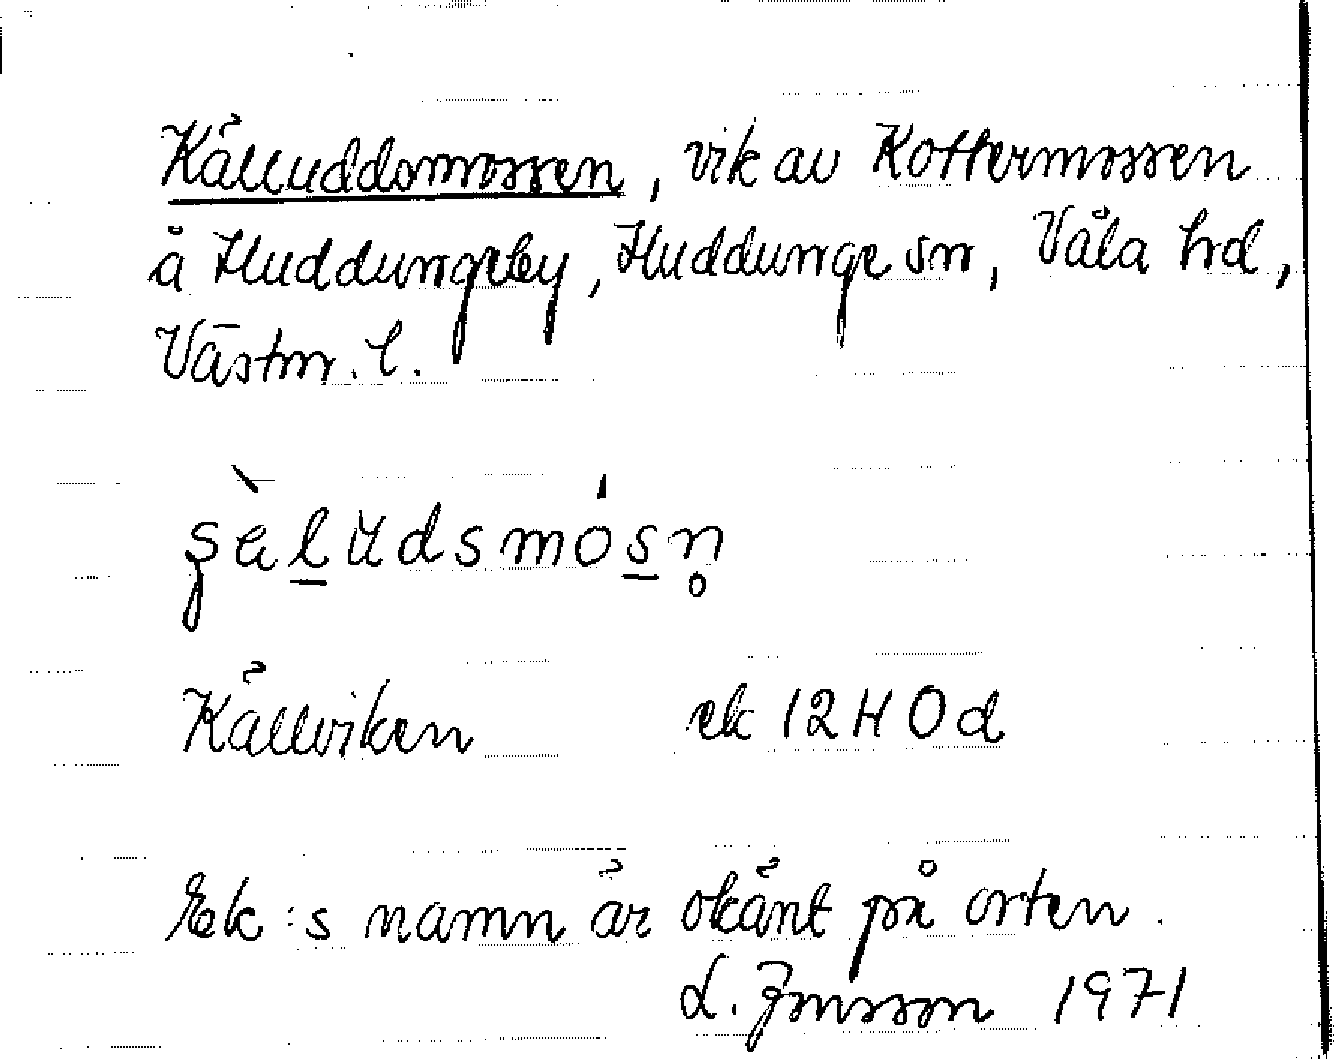 Källuddsmossen, vik av Kottermossen
å Huddungeby, Huddunge sn, Våla hd,
Västm. l.
Källviken ek 12 H 0 d
Eek:s namn är okänt på orten.
L. Jonsson 1971